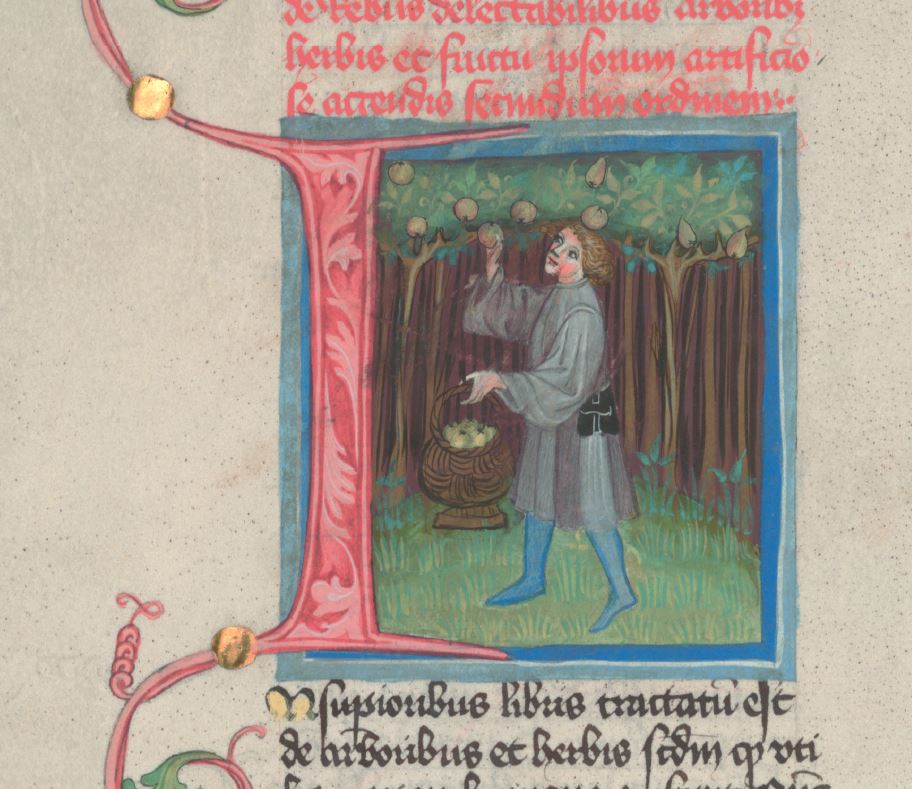 de rebus delectabilibus arboribz
herbis et fructu ipsorum artificio
se agendis secundum ordinem
I
Nsupioribus libris tractatū est
de arboribus et herbis scdm qp vti